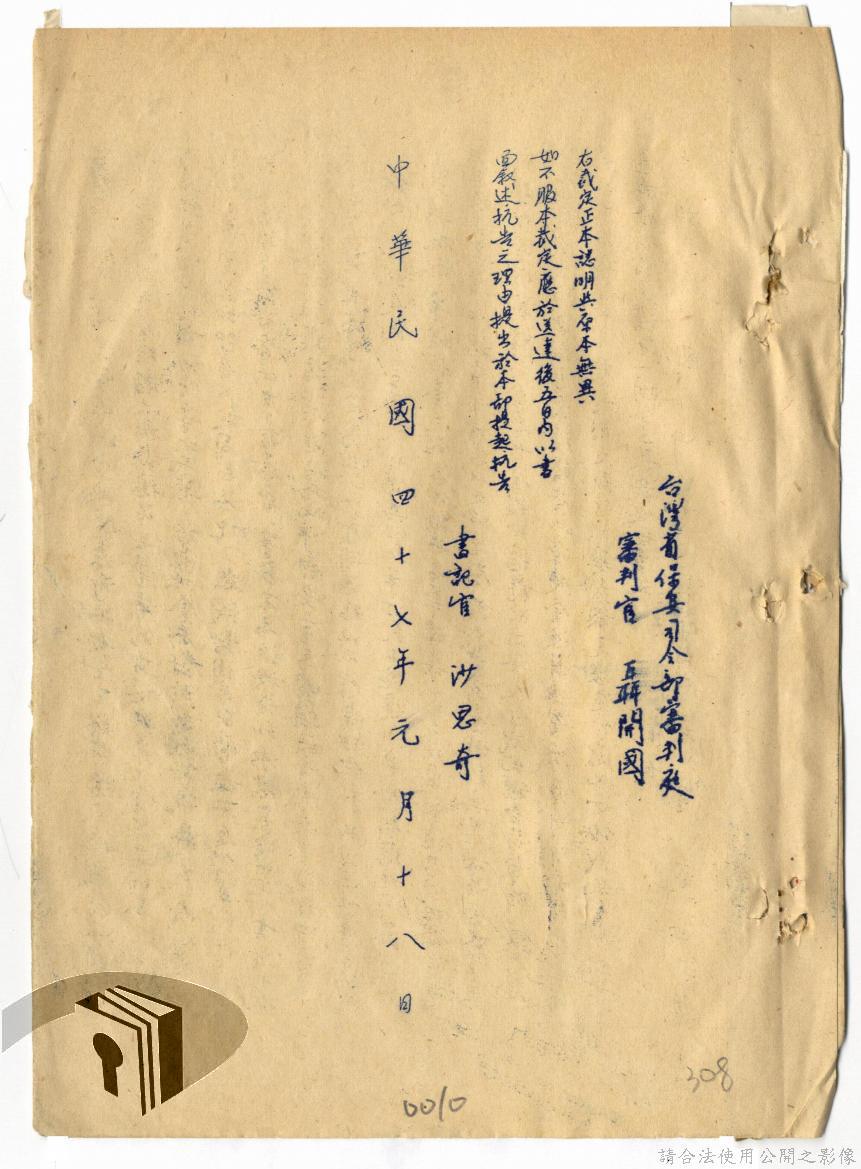 台灣省保安司令部審判庭
審判官 聶開國
右裁定正本證明與原本無異
如不服本裁定應於送達後五日內以書
面敘述抗告之理由提出於本部提起抗告
書記官 沙思奇
中華民國四十七年元月十八日
308
0010
請合法使用公開之影像